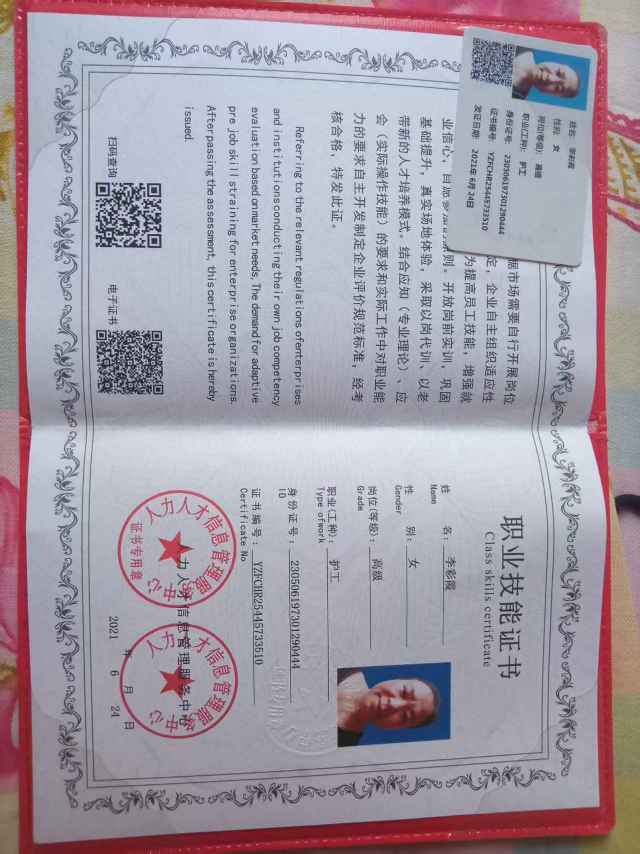 姓名: 李彩霞
性别: 女
岗位(等级): 高级
职业(工种): 护工
身份证号: 230506197301290444
证书编号: YZFCHR25445733510
发证日期: 2021年 6月 24日
据市场需要自行开展岗位
定，企业自主组织适应性
为提高员工技能，增强就
业信心，
则。开放岗前实训，巩固
基础提升，真实场地体验，采取以岗代训、以老
带新的人才培养模式。结合应知（专业理论）、应
会（实际操作技能）的要求和实际工作中对职业能
力的要求自主开发制定企业评价规范标准，经考
核合格，特发此证。
Referring to the relevant regulations ofenterprises
and institutions conducting their own job competency
evaluation based on market needs. The demand for adaptive
pre job skill straining for enterprise organizations.
After passing the assessment, this certificate is hereby
issued.
扫码查询
电子证书
职业技能证书
Class skills certificate
姓 名: 李彩霞
Name
性 别: 女
Gender
岗位(等级): 高级
Grade
职业(工种): 护工
Type ofwork
身份证号: 230506197301290444
ID
证书编号: YZFCHR25445733510
Certificate No
人力人才信息管理服务中心
证书专用章
力人才信息管理服务中心
人力人才信息管理服务中心
2021 年 6 月 24 日